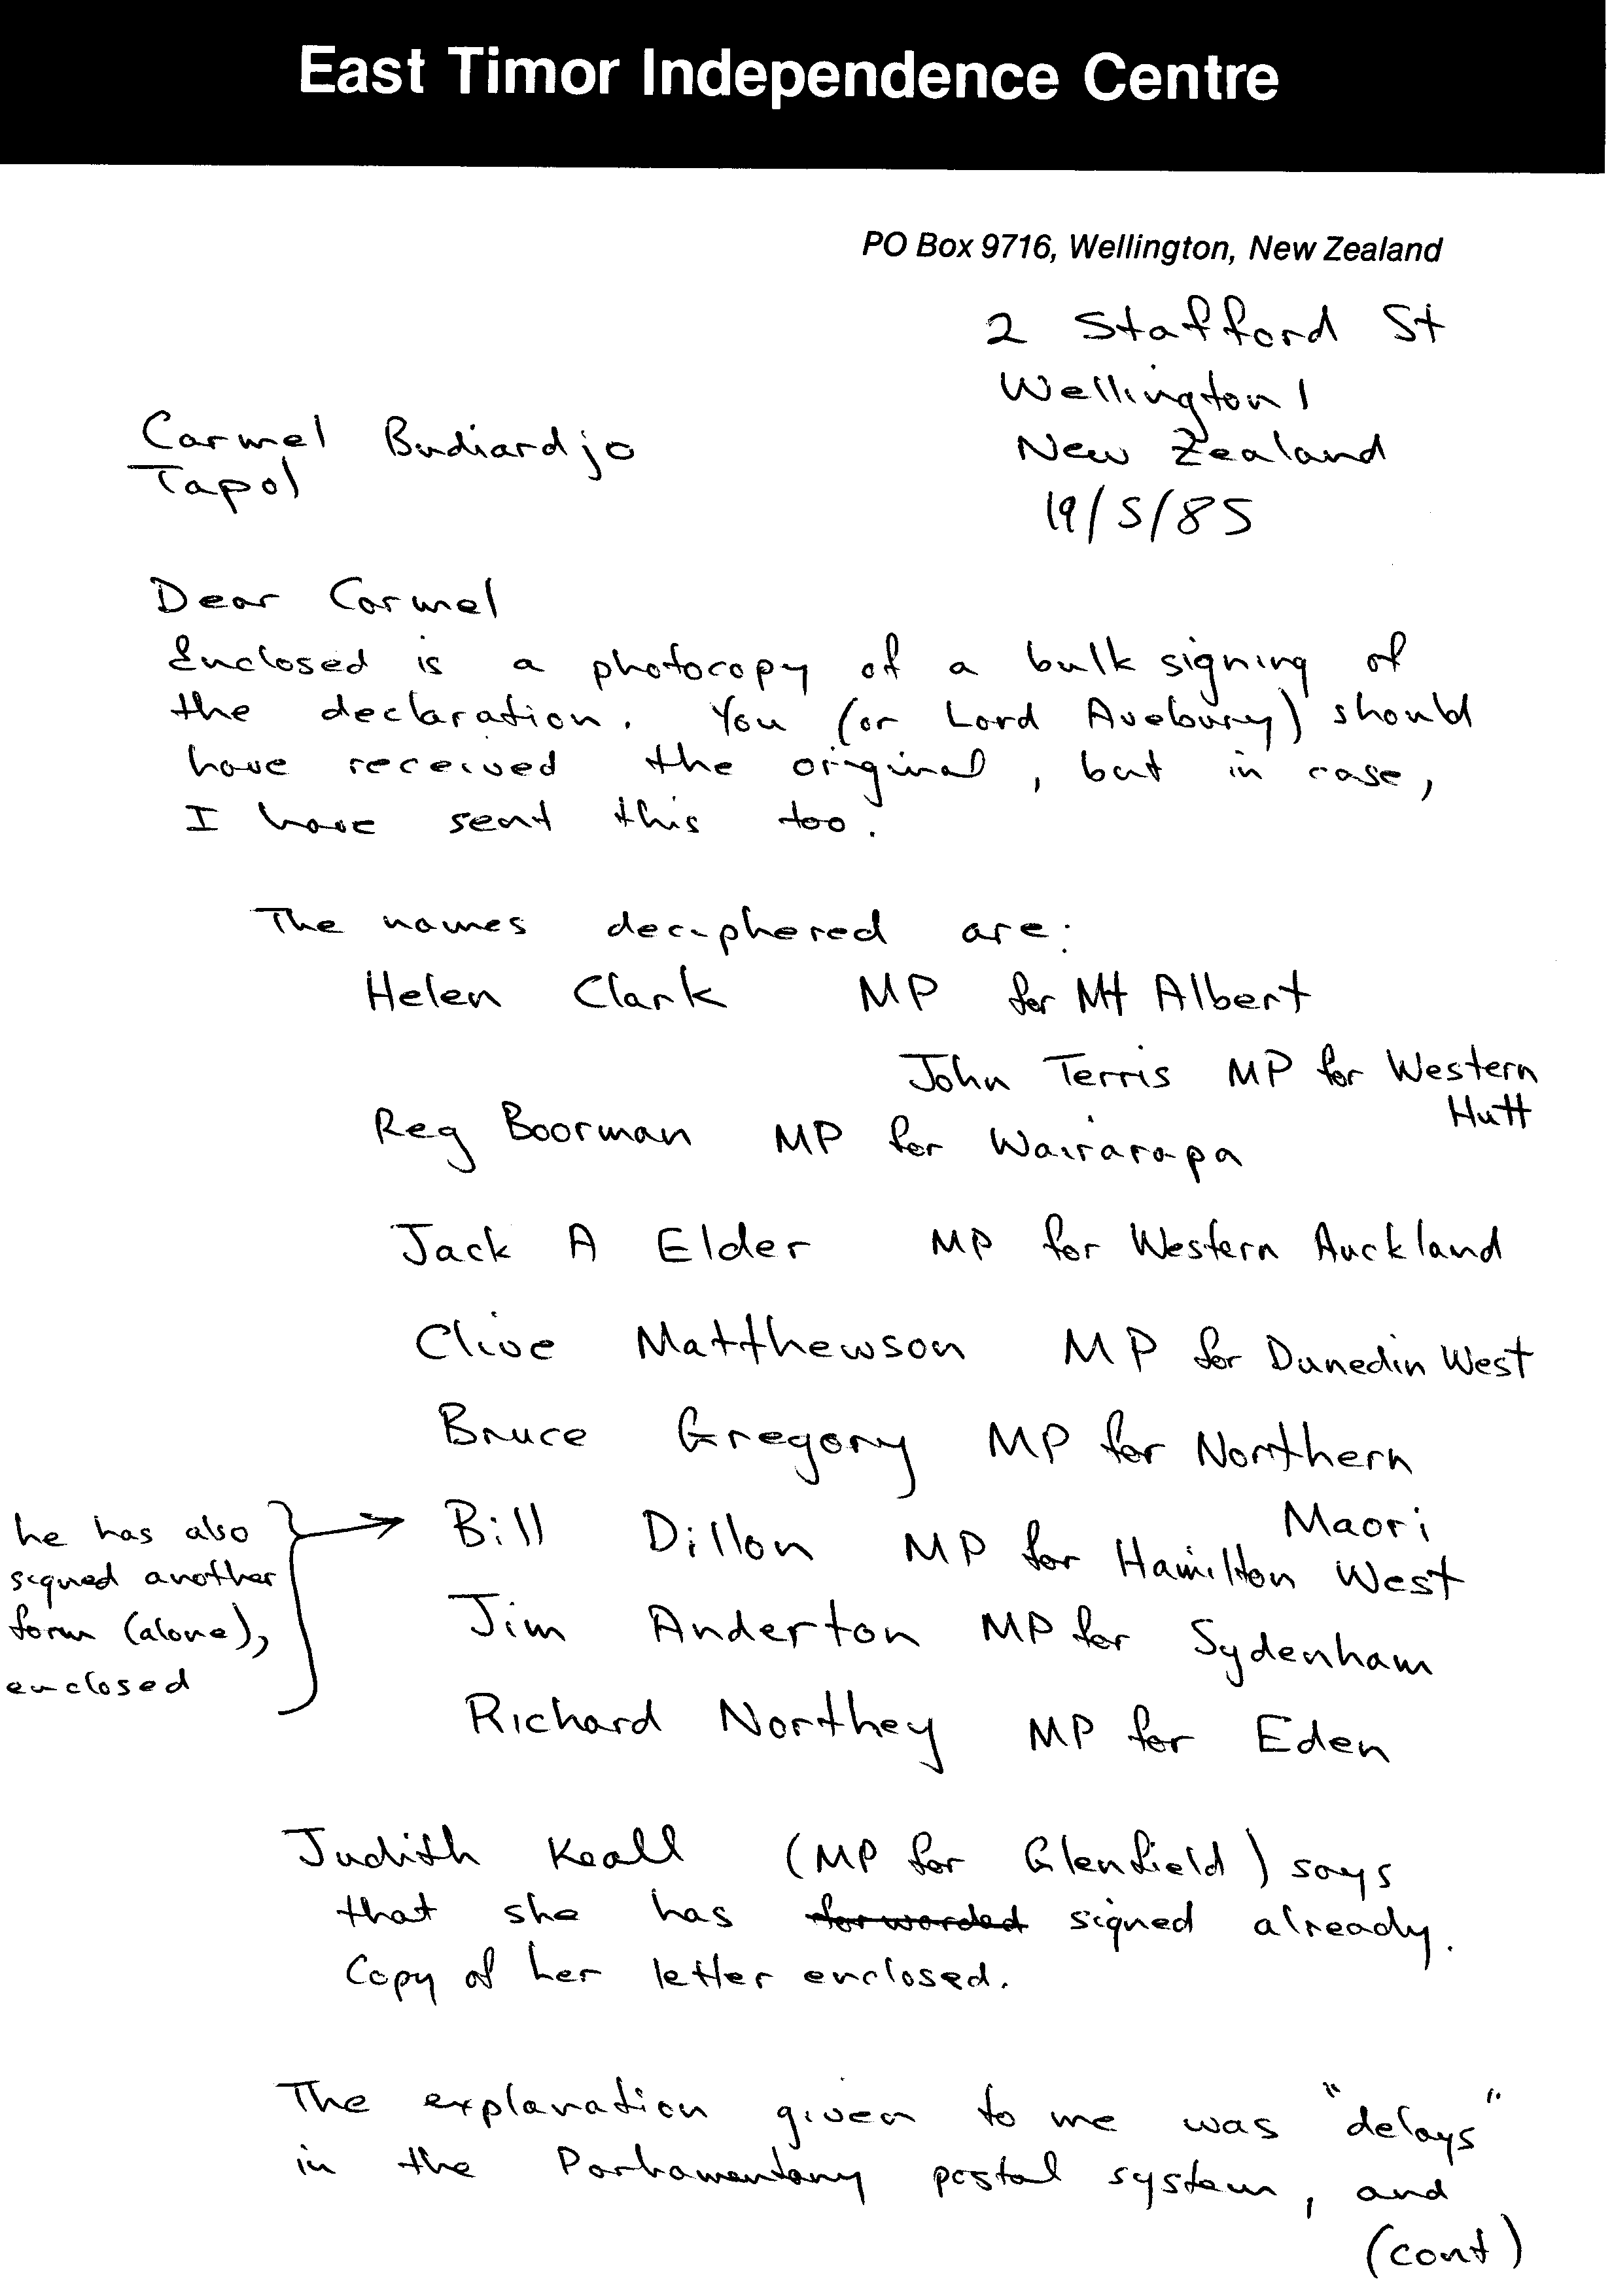 East Timor Independence Centre
PO Box 9716, Wellington, New Zealand
2 Stafford St
Wellington 1
New Zealand
19/5/85
Carmel Budiardjo
Tapol
Dear Carmel
Enclosed is a photocopy of a bulk signing of
the declaration. You (or Lord Avebury) should
have received the original, but in case,
I have sent this too.
The names deciphered are:
Helen Clark MP for Mt Albert
John Terris MP for Western
Hutt
Reg Boorman MP for Wairarapa
Jack A Elder MP for Western Auckland
Clive Matthewson MP for Dunedin West
Bruce Gregory MP for Northern
Maori
he has also
signed another
form (alone),
enclosed
Bill Dillon MP for Hamilton West
Jim Anderton MP for Sydenham
Richard Northey MP for Eden
Judith Keall (MP for Glenfield) says
that she has forwarded signed already.
Copy of her letter enclosed.
The explanation given to me was "delays"
in the Parliamentary postal system, and
(cont)